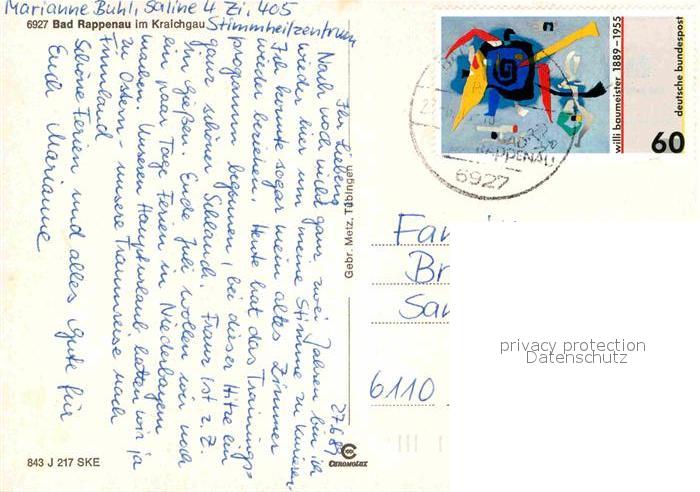 Marianne Buhl, Saline 4 Zi. 405
6927 Bad Rappenau im Kraichgau
Stimmheilzentrum
27.6.89
Ihr Lieben,
Nach noch nicht ganz zwei Jahren bin ich
wieder hier um meine Stimme zu kurieren.
Ich konnte sogar mein altes Zimmer
wieder beziehen. Heute hat das Trainings-
programm begonnen, bei dieser Hitze ein
ganz schöner Schlauch. Franz ist z. Z.
in Gießen. Ende Juli wollen wir noch
ein paar Tage Ferien in Niederbayern
machen. Unseren Haupturlaub hatten wir ja
zu Ostern - unsere Traumreise nach
Finnland
Schöne Ferien und alles Gute für
Euch Marianne
843 J 217 SKE
Gebr. Metz, Tübingen
CHROMOLUX
willi baumeister 1889-1955
deutsche bundespost
60
BAD
RAPPENAU
6927
Fam
Br
San
6110
privacy protection
Datenschutz